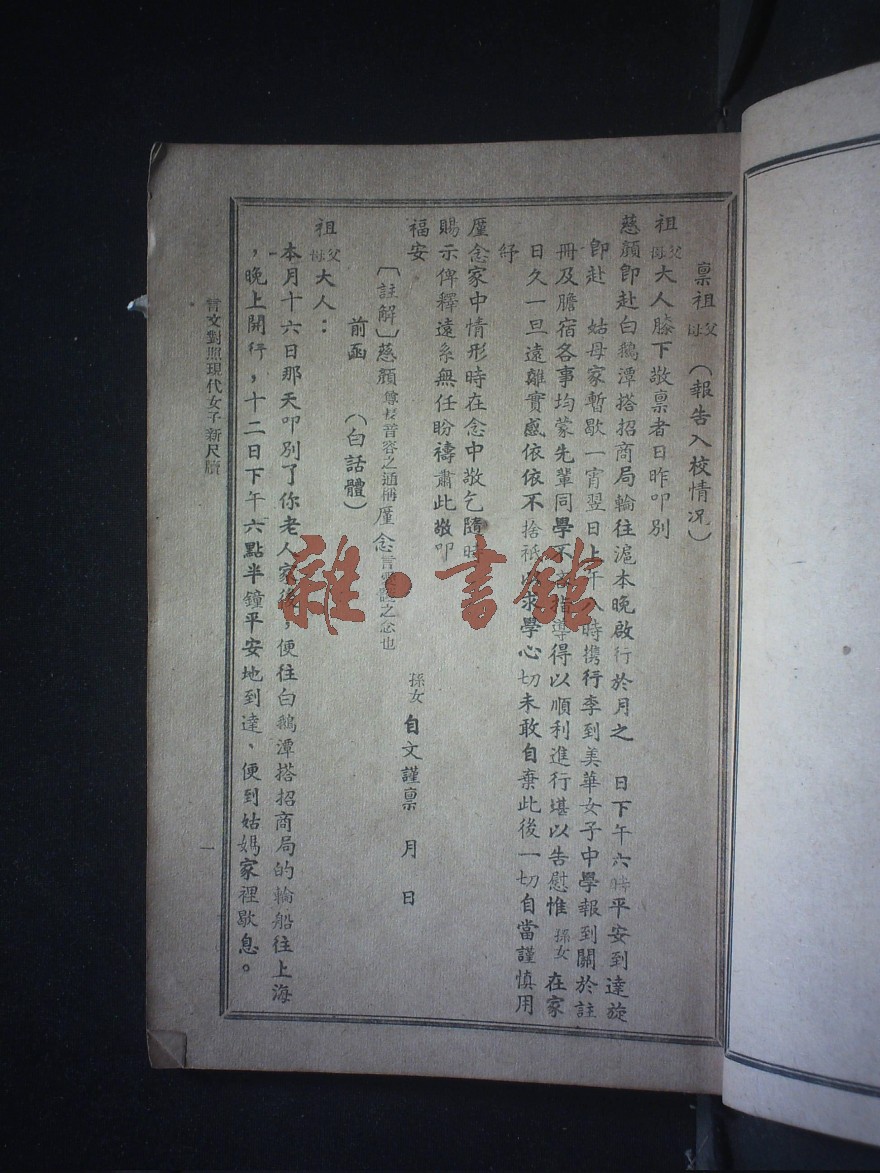 稟祖父母（報告入校情况）
祖父母大人膝下敬稟者日昨叩別
慈顏卽赴白鵝潭搭招商局輪往滬本晚啟行於月之　日下午六時平安到達旋
卽赴　姑母家暫歇一宵翌日上午八時携行李到美華女子中學報到關於註
冊及膳宿各事均蒙先輩同學不指導得以順利進行堪以告慰惟孫女在家
日久一旦遠離實感依依不捨祇以求學心切未敢自棄此後一切自當謹慎用
紓
厪念家中情形時在念中敬乞隨時
賜示俾釋遠系無任盼禱肅此敬叩
福安
孫女自文謹稟　月　日
〔註解〕慈顏尊長音容之通稱厪念言之念也
前函　（白話體）
祖父母大人：
本月十六日那天叩別了你老人家後，便往白鵝潭搭招商局的輪船往上海
，晚上開行，十二日下午六點半鐘平安地到達、便到姑媽家裡歇息。
言文對照現代女子新尺牘
一
雜·書館